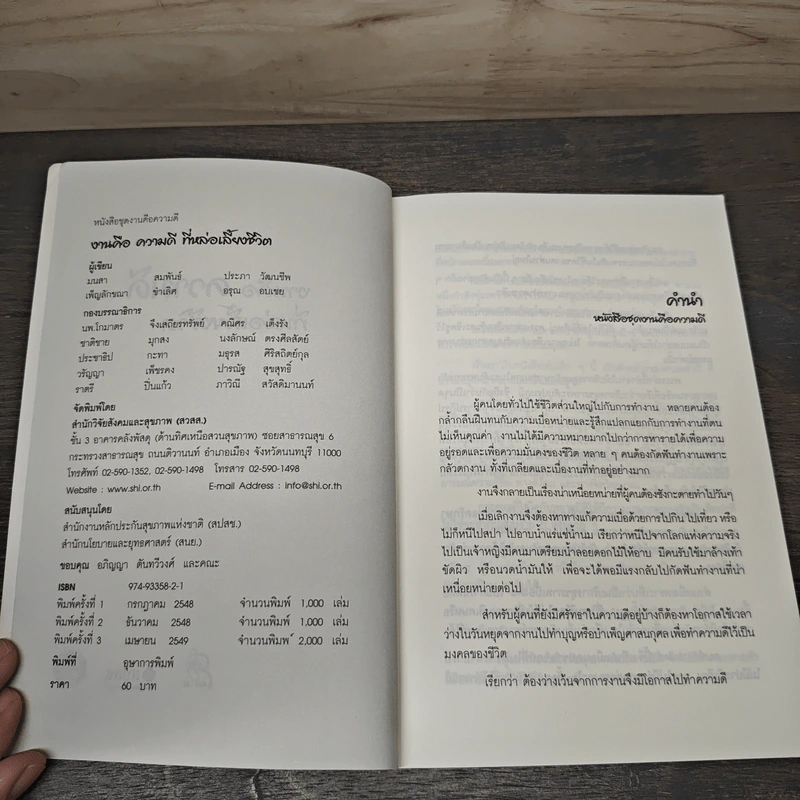 หนังสือชุดงานคือความดี
งานคือ ความดี ที่หล่อเลี้ยงชีวิต
ผู้เขียน
มนสา สมพันธ์ ประภา วัฒนชีพ
เพ็ญลักขณา ขำเลิศ อรุณ อบเชย
กองบรรณาธิการ
นพ.โกมาตร จึงเสถียรทรัพย์ คณิศร เต็งรัง
ชาติชาย มุกสง นงลักษณ์ ตรงศีลสัตย์
ประชาธิป กะทา มธุรส ศิริสถิตย์กุล
วรัญญา เพ็ชรคง ปารณัฐ สุขสุทธิ์
ราตรี ปิ่นแก้ว ภาวิณี สวัสดิมานนท์
จัดพิมพ์โดย
สำนักวิจัยสังคมและสุขภาพ (สวสส.)
ชั้น 3 อาคารคลังพัสดุ (ด้านทิศเหนือสวนสุขภาพ) ซอยสาธารณสุข 6
กระทรวงสาธารณสุข ถนนติวานนท์ อำเภอเมือง จังหวัดนนทบุรี 11000
โทรศัพท์ 02-590-1352, 02-590-1498 โทรสาร 02-590-1498
Website : www.shi.or.th E-mail Address : info@shi.or.th
สนับสนุนโดย
สำนักงานหลักประกันสุขภาพแห่งชาติ (สปสช.)
สำนักนโยบายและยุทธศาสตร์ (สนย.)
ขอบคุณ อภิญญา ตันทวีวงศ์ และคณะ
ISBN 974-93358-2-1
พิมพ์ครั้งที่ 1 กรกฎาคม 2548 จำนวนพิมพ์ 1,000 เล่ม
พิมพ์ครั้งที่ 2 ธันวาคม 2548 จำนวนพิมพ์ 1,000 เล่ม
พิมพ์ครั้งที่ 3 เมษายน 2549 จำนวนพิมพ์ 2,000 เล่ม
พิมพ์ที่ อุษาการพิมพ์
ราคา 60 บาท
คำนำ
หนังสือชุดงานคือความดี
ผู้คนโดยทั่วไปใช้ชีวิตส่วนใหญ่ไปกับการทำงาน หลายคนต้อง
กล้ำกลืนฝืนทนกับความเบื่อหน่ายและรู้สึกแปลกแยกกับการทำงานที่ตน
ไม่เห็นคุณค่า งานไม่ได้มีความหมายมากไปกว่าการหารายได้เพื่อความ
อยู่รอดและเพื่อความมั่นคงของชีวิต หลาย ๆ คนต้องกัดฟันทำงานเพราะ
กลัวตกงาน ทั้งที่เกลียดและเบื่องานที่ทำอยู่อย่างมาก
งานจึงกลายเป็นเรื่องน่าเหนื่อยหน่ายที่ผู้คนต้องซังกะตายทำไปวันๆ
เมื่อเลิกงานจึงต้องหาทางแก้ความเบื่อด้วยการไปกิน ไปเที่ยว หรือ
ไม่ก็หนีไปสปา ไปอาบน้ำแร่แช่น้ำนม เรียกว่าหนีไปจากโลกแห่งความจริง
ไปเป็นเจ้าหญิงมีคนมาเตรียมน้ำลอยดอกไม้ให้อาบ มีคนรับใช้มาล้างเท้า
ขัดผิว หรือนวดน้ำมันให้ เพื่อจะได้พอมีแรงกลับไปกัดฟันทำงานที่น่า
เหนื่อยหน่ายต่อไป
สำหรับผู้คนที่ยังมีศรัทธาในความดีอยู่บ้างก็ต้องหาโอกาสใช้เวลา
ว่างในวันหยุดจากงานไปทำบุญหรือบำเพ็ญศาสนกุศล เพื่อทำความดีไว้เป็น
มงคลของชีวิต
เรียกว่า ต้องว่างเว้นจากการงานจึงมีโอกาสไปทำความดี